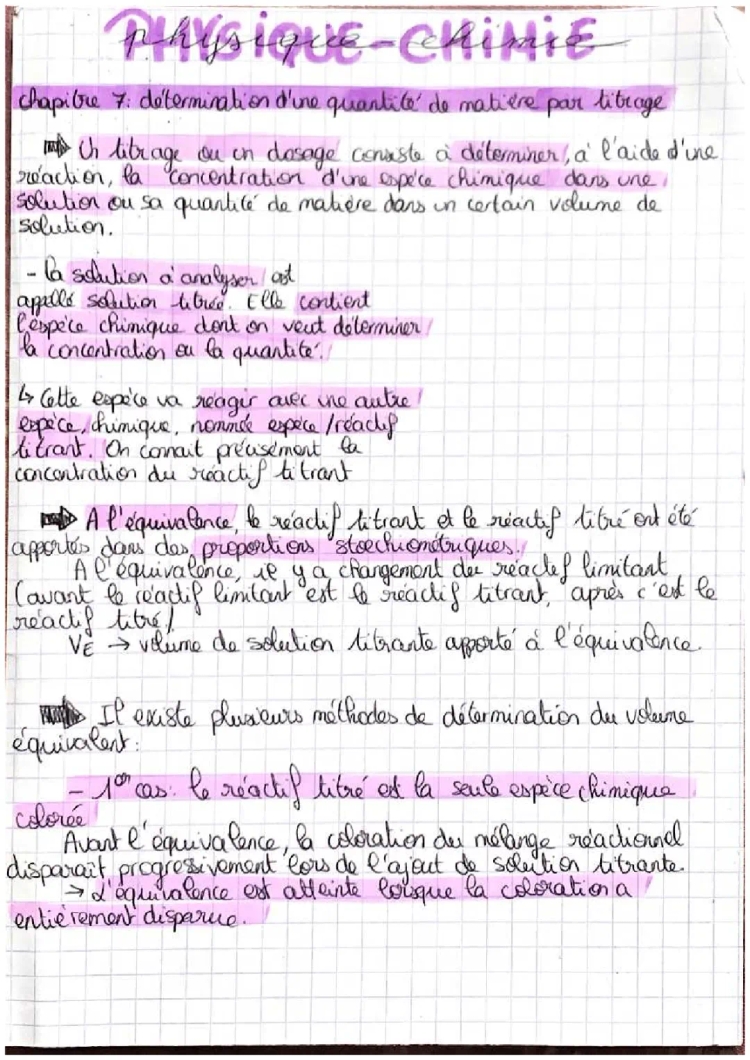 PHYSIQUE-CHIMIE
physique-chimie
chapitre 7: détermination d'une quantité de matière par titrage
Un titrage ou un dosage consiste à déterminer, à l'aide d'une
réaction, la concentration d'une espèce chimique dans une
solution ou sa quantité de matière dans un certain volume de
solution.
- la solution à analyser est
appellé solution titrée. Elle contient
l'espèce chimique dont on veut déterminer
la concentration ou la quantité.
↳ Cette espèce va réagir avec une autre
espèce, chimique, nommée espèce/réactif
titrant. On connait précisément la
concentration du réactif titrant
A l'équivalence, le réactif titrant et le réactif titré ont été
apportés dans des proportions stoechiométriques.
A l'équivalence, il y a changement de réactif limitant
(avant le réactif limitant est le réactif titrant, après c'est le
réactif titré)
VE → volume de solution titrante apporté à l'équivalence.
Il existe plusieurs méthodes de détermination du volume
équivalent:
- 1er cas: le réactif titré est la seule espèce chimique
colorée
Avant l'équivalence, la coloration du mélange réactionnel
disparaît progressivement lors de l'ajout de solution titrante.
→ L'équivalence est atteinte lorsque la coloration a
entièrement disparue.